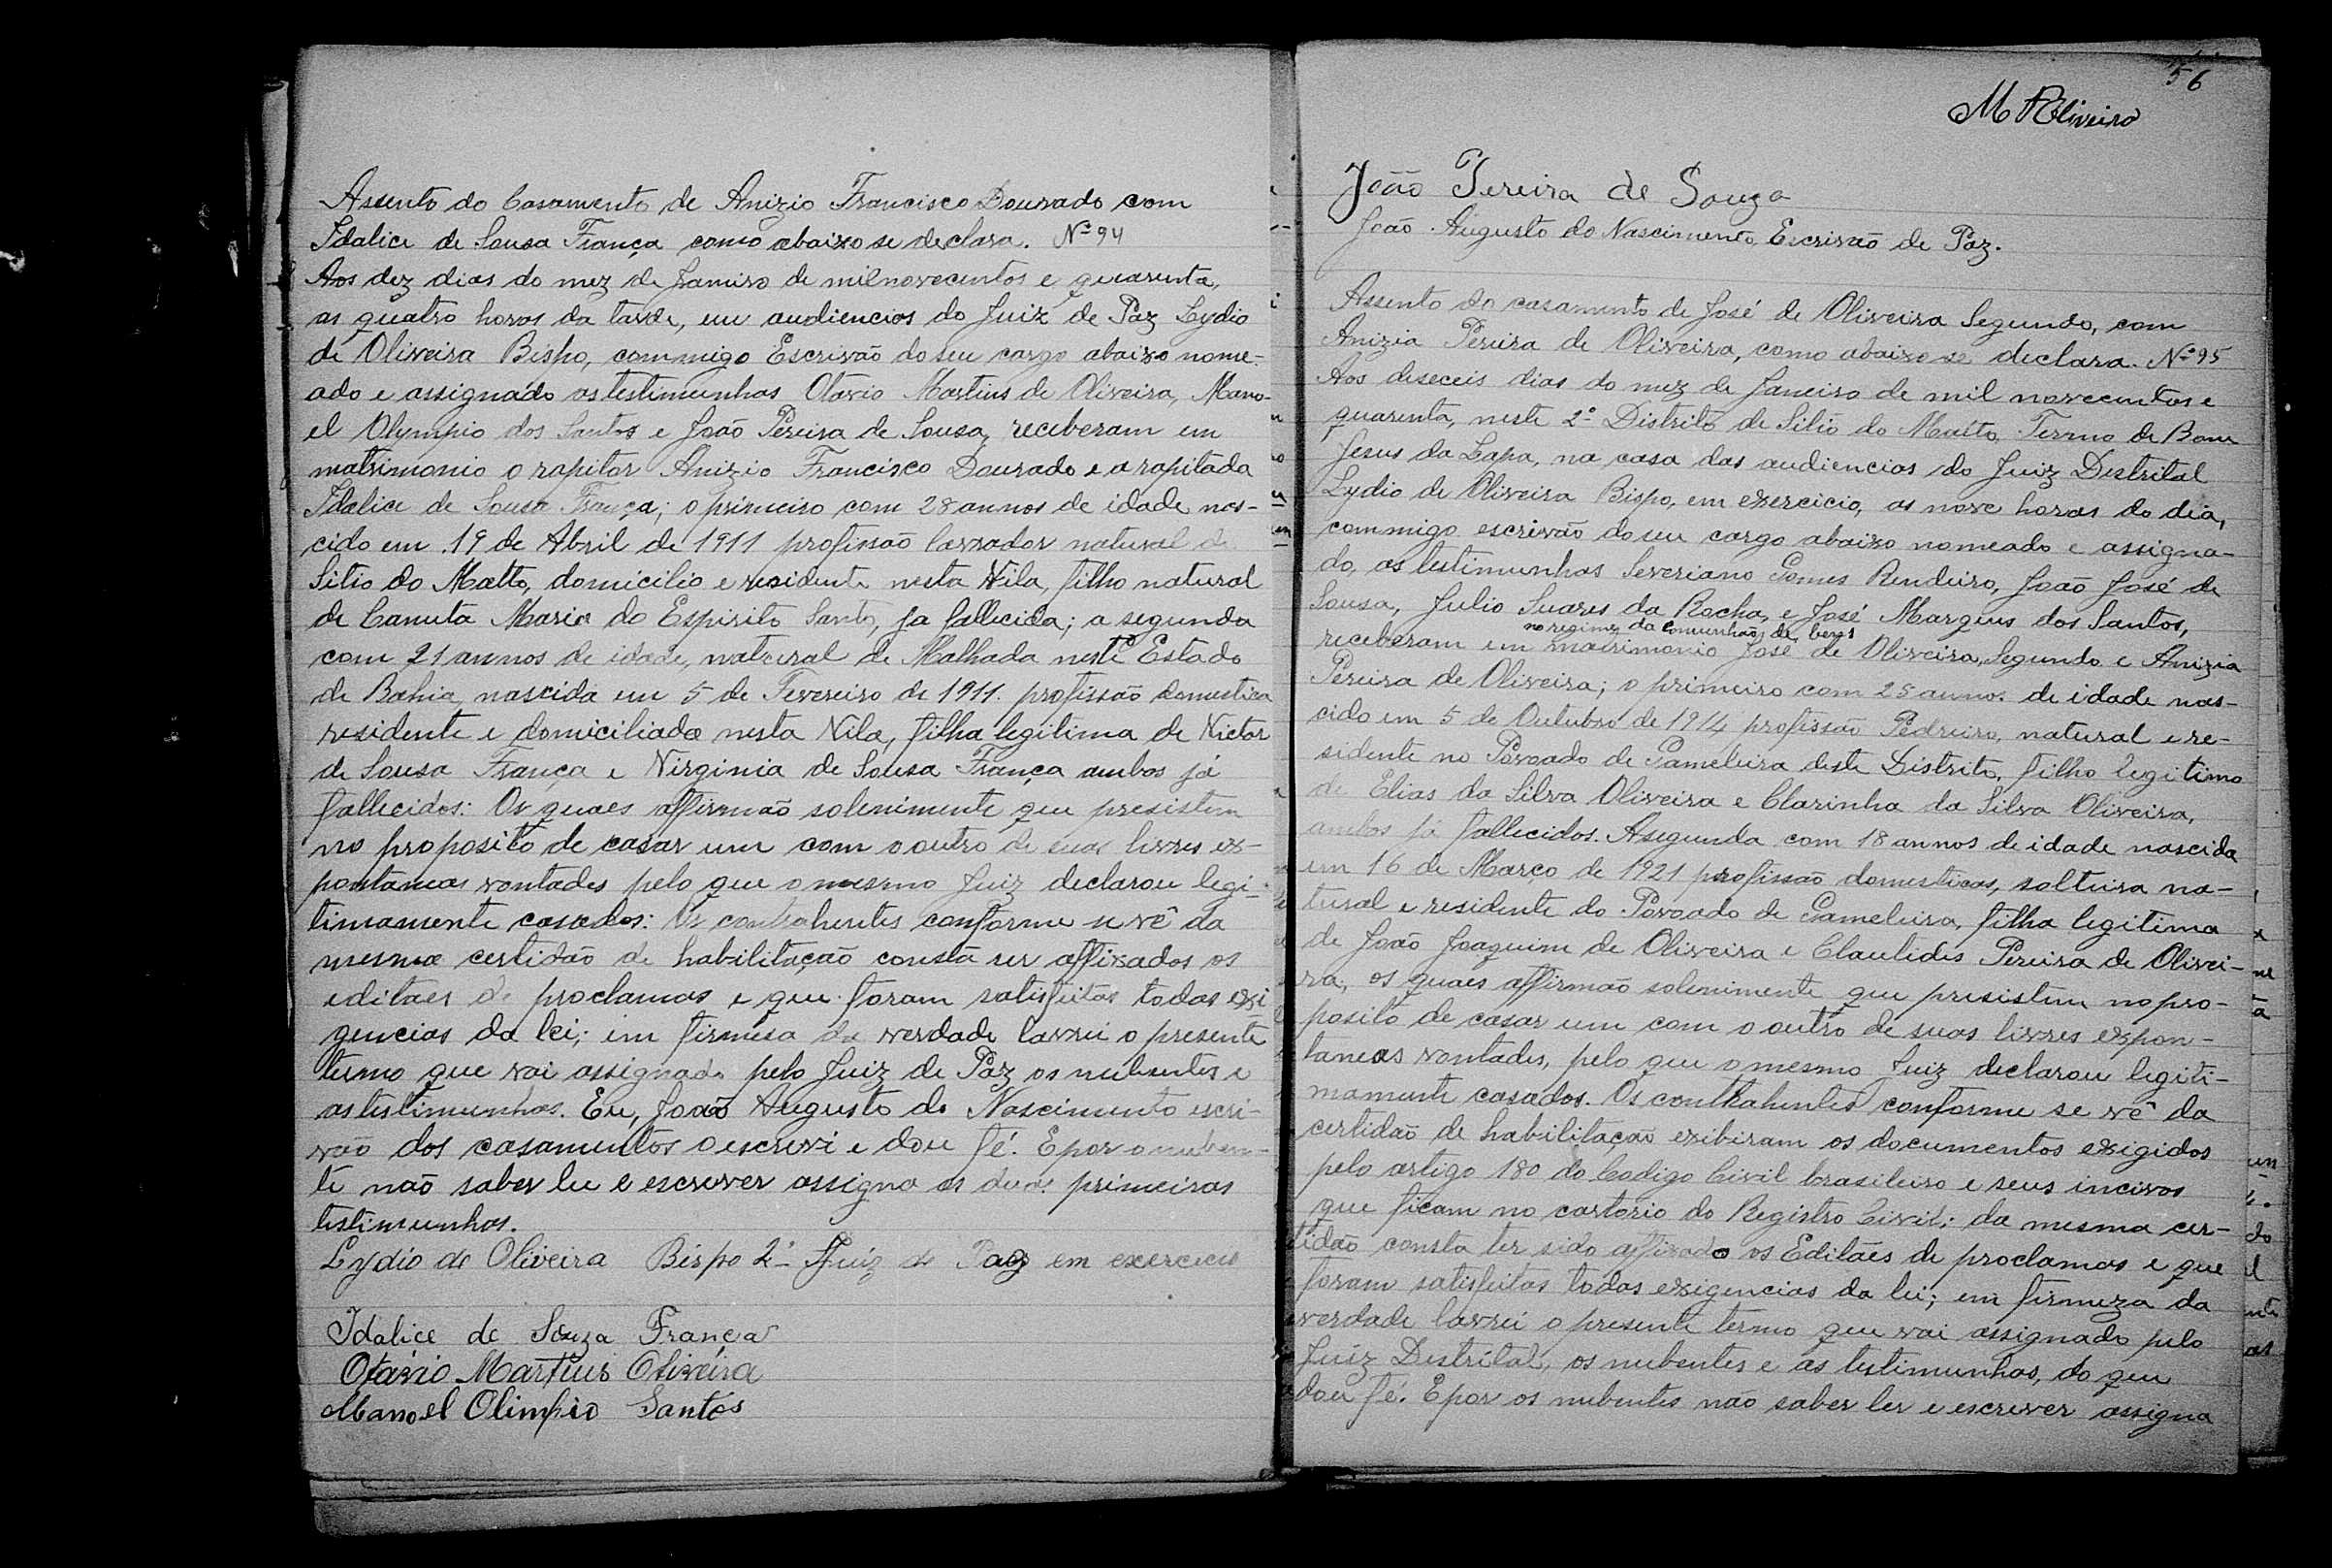 Assento do Casamento de Anizio Francisco Dourado com
Idalice de Sousa França como abaixo se declara. Nº 94
Aos dez dias do mez de Janeiro de mil novecentos e quarenta,
as quatro horas da tarde, em audiencias do Juiz de Paz Lydio
de Oliveira Bispo, commigo Escrivão do seu cargo abaixo nome-
ado e assignado as testimunhas Otavio Martins de Oliveira, Mano-
el Olympio dos Santos e João Pereira de Sousa, receberam em
matrimonio o rapitor Anizio Francisco Dourado e a rapitada
Idalice de Sousa França; o primeiro com 28 annos de idade nas-
cido em 19 de Abril de 1911 profissão lavrador natural de
Sitio do Matto, domicilio e residente nesta Vila, filho natural
de Canuta Maria do Espirito Santo, ja fallecida; a segunda
com 21 annos de idade, natural de Malhada neste Estado
de Bahia, nascida em 5 de Fevereiro de 1911. profissão domestica
residente e domiciliada nesta Vila, filha legitima de Victor
de Sousa França e Virginia de Sousa França ambos já
fallecidos: Os quaes affirmão solenimente que presistem
no proposito de casar um com o outro de suas livres ex-
pontaneas vontades pelo que o mesmo Juiz declarou legi-
timamente casados: Os contrahentes conforme se vê da
mesma certidão de habilitação consta ser affixados os
editaes de proclamas e que foram satisfeitas todas exi
gencias da lei; em firmesa da verdade lavrei o presente
termo que vai assignado pelo Juiz de Paz os nubentes e
as testimunhas. Eu, João Augusto do Nascimento escri-
vão dos casamentos o escrevi e dou fé. E por o nuben-
te não saber ler e escrever assigna as duas primeiras
testimunhas.
Lydio de Oliveira Bispo 2º Juiz de Paz em exercicio
Idalice de Souza França
Otavio Martins Oliveira
Manoel Olimpio Santos
56
M P Oliveira
João Pereira de Souza
João Augusto do Nascimento, Escrivão de Paz.
Assento do casamento de José de Oliveira Segundo, com
Anizia Pereira de Oliveira, como abaixo se declara. Nº 95
Aos deseceis dias do mez de Janeiro de mil novecentos e
quarenta, neste 2º Distrito de Sitio do Matto, Termo de Bom
Jesus da Lapa, na casa das audiencias do Juiz Distrital
Lydio de Oliveira Bispo, em exercicio, as nove horas do dia,
commigo escrivão do seu cargo abaixo nomeado e assigna-
do, as testimunhas Severiano Gomes Rendeiro, João José de
Sousa, Julio Suares da Rocha, e José Marques dos Santos,
no regime da comunhão de bens
receberam em matrimonio José de Oliveira Segundo e Anizia
Pereira de Oliveira; o primeiro com 25 annos de idade nas-
cido em 5 de Outubro de 1914 profissão Pedreiro, natural e re-
sidente no Povoado de Gameleira deste Distrito, filho legitimo
de Elias da Silva Oliveira e Clarinha da Silva Oliveira,
ambos já fallecidos. A segunda com 18 annos de idade nascida
em 16 de Março de 1921 profissão domesticas, solteira na-
tural e residente do Povoado de Gameleira, filha legitima
de João Joaquim de Oliveira e Claulides Pereira de Olivei-
ra, os quaes affirmão solenimente que presistem no pro-
posito de casar um com o outro de suas livres expon-
taneas vontades, pelo que o mesmo Juiz declarou legiti-
mamente casados. Os contrahentes conforme se vê da
certidão de habilitação exibiram os documentos exigidos
pelo artigo 180 do Codigo Civil brasileiro e seus incivos
que ficam no cartorio do Registro Civil; da mesma cer-
tidão consta ter sido affixado os Editães de proclamas e que
foram satisfeitas todas exigencias da lei; em firmeza da
verdade lavrei o presente termo que vai assignado pelo
Juiz Destrital, os nubentes e as testimunhas, do que
dou fé. E por os nubentes não saber ler e escrever assigna